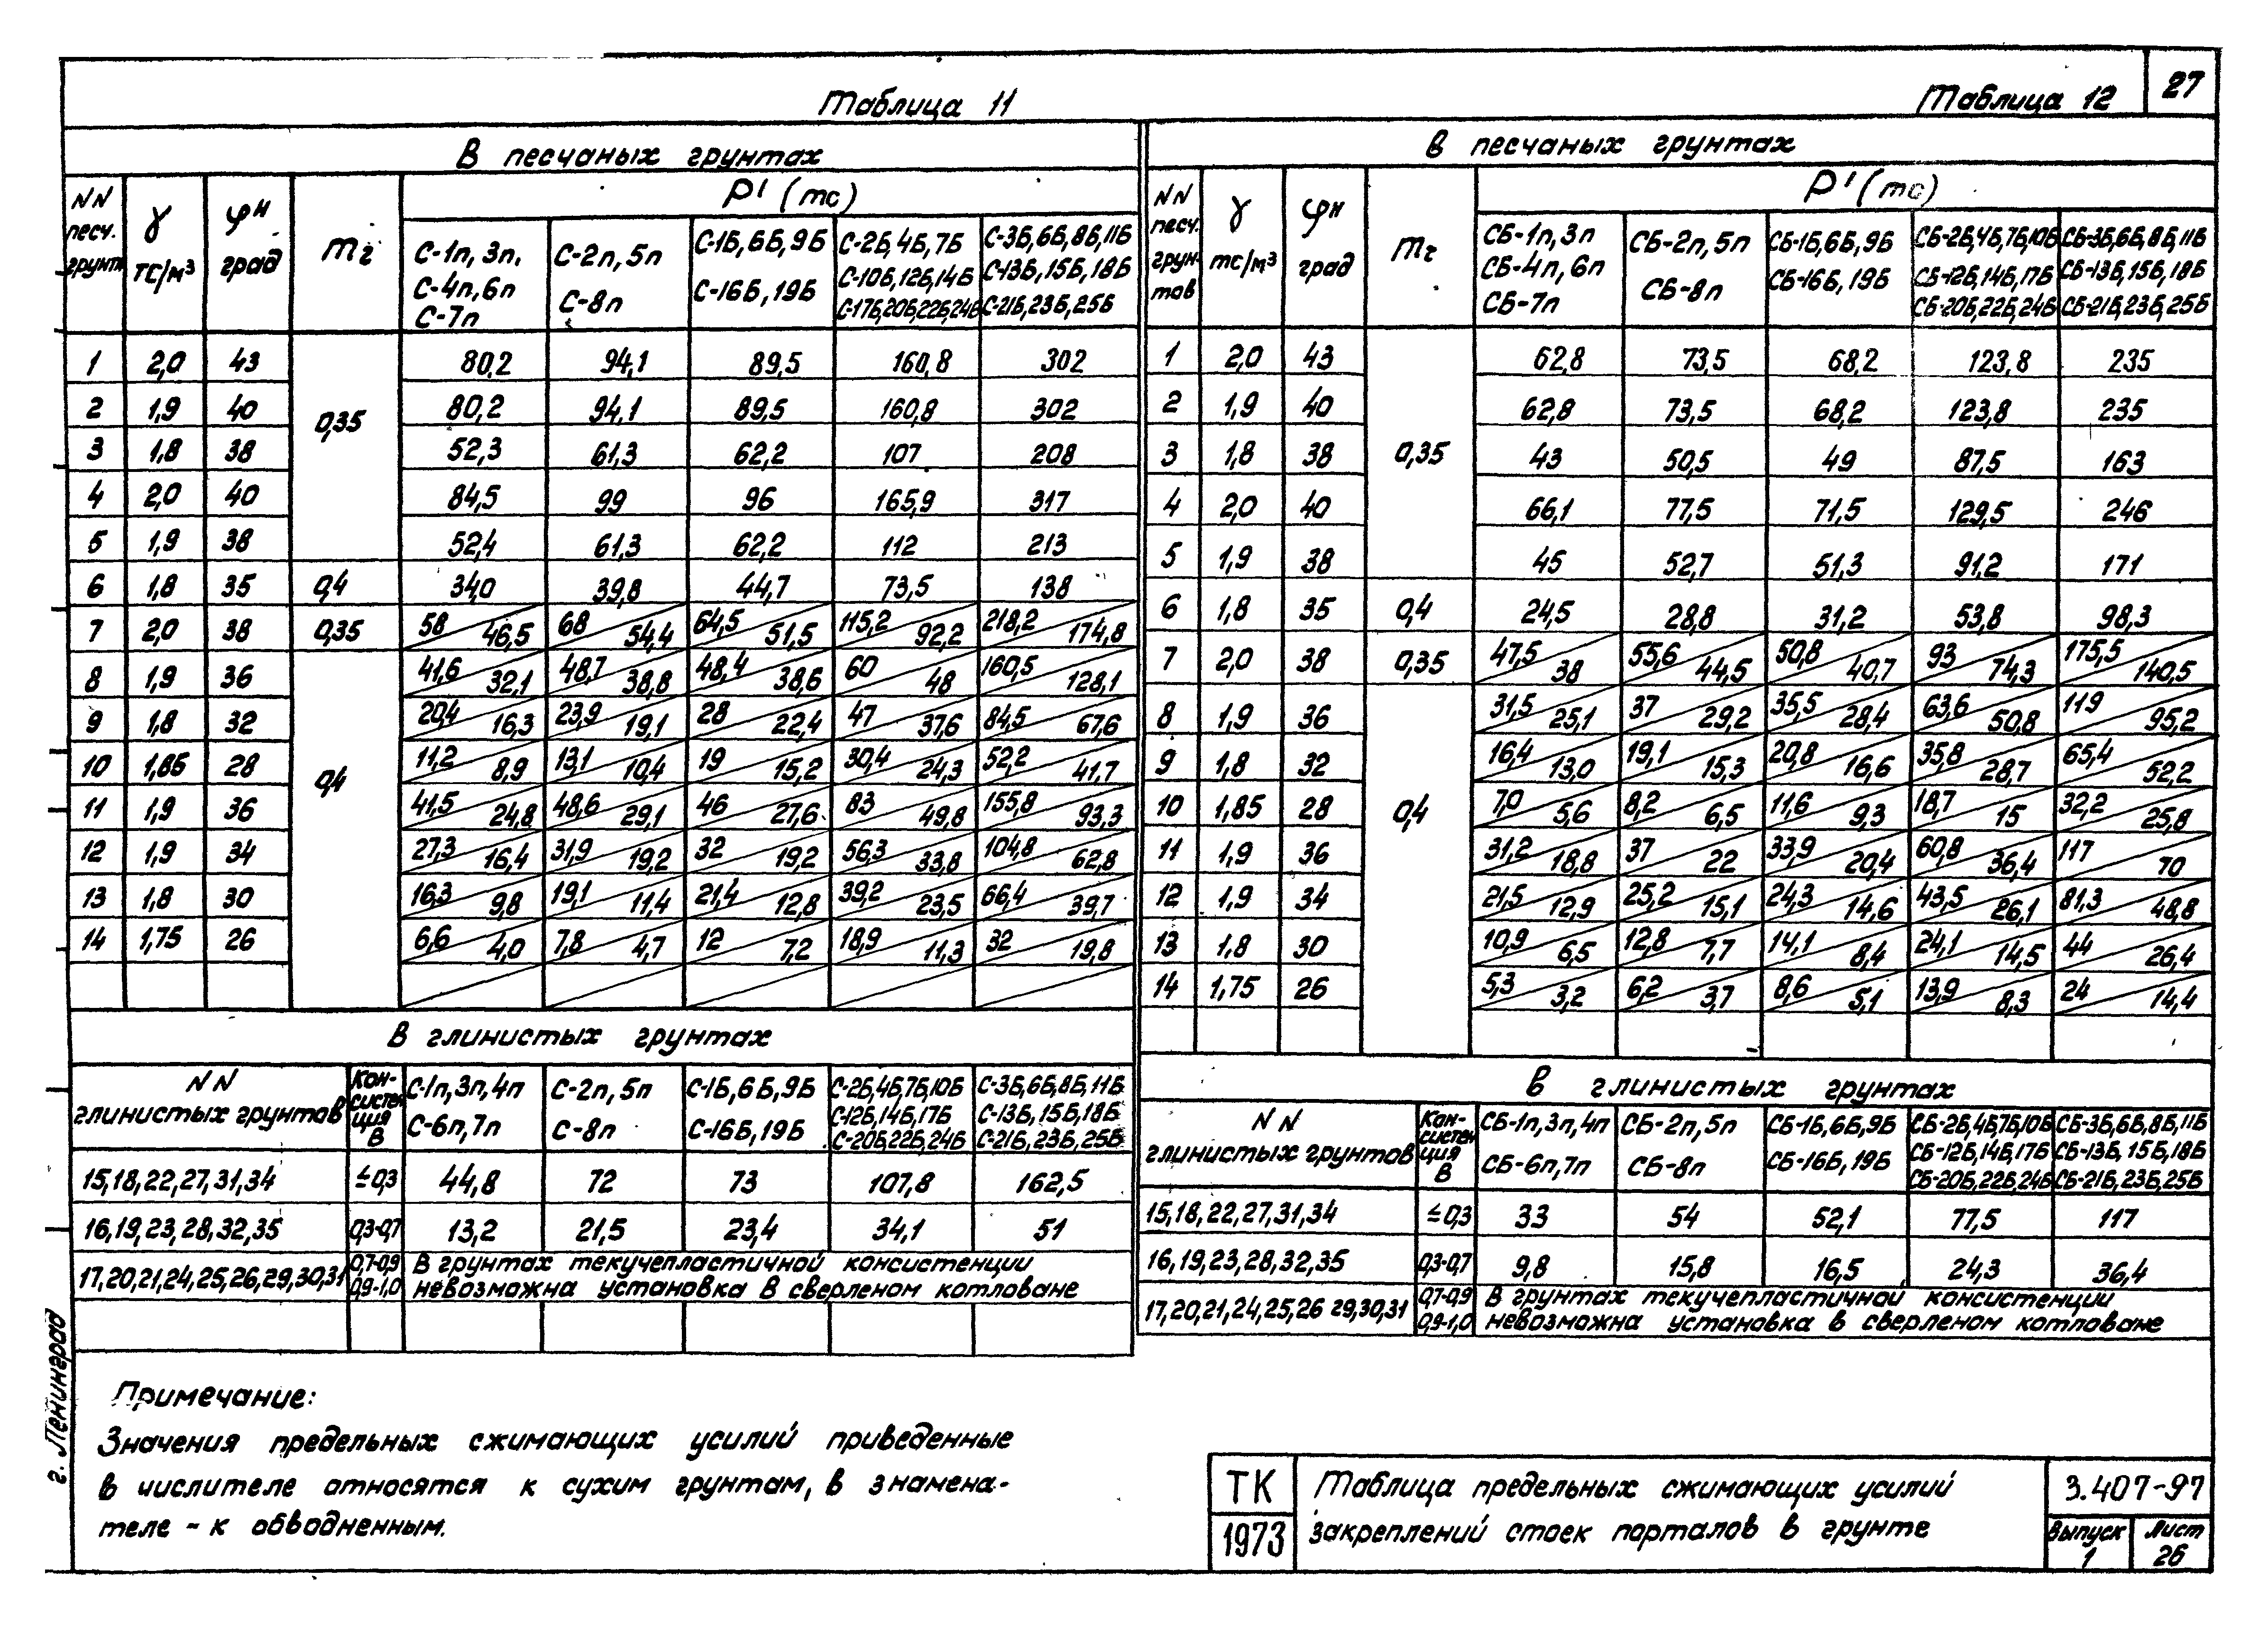 27
Таблица 11
В песчаных грунтах
NN песч. грунт γ ТС/м³ φᴴ град mг P' (тс)
С-1п, 3п, С-4п, 6п С-7п
С-2п, 5п С-8п
С-1Б, 6Б, 9Б С-16Б, 19Б
С-2Б, 4Б, 7Б С-10Б, 12Б, 14Б С-17Б, 20Б, 22Б, 24Б
С-3Б, 6Б, 8Б, 11Б С-13Б, 15Б, 18Б С-21Б, 23Б, 25Б
1 2,0 43 0,35 80,2 94,1 89,5 160,8 302
2 1,9 40 80,2 94,1 89,5 160,8 302
3 1,8 38 52,3 61,3 62,2 107 208
4 2,0 40 84,5 99 96 165,9 317
5 1,9 38 52,4 61,3 62,2 112 213
6 1,8 35 0,4 34,0 39,8 44,7 73,5 138
7 2,0 38 0,35 58/46,5 68/54,4 64,5/51,5 115,2/92,2 218,2/174,8
8 1,9 36 0,4 41,6/32,1 48,7/38,8 48,4/38,6 60/48 160,5/128,1
9 1,8 32 20,4/16,3 23,9/19,1 28/22,4 47/37,6 84,5/67,6
10 1,85 28 11,2/8,9 13,1/10,4 19/15,2 30,4/24,3 52,2/41,7
11 1,9 36 41,5/24,8 48,6/29,1 46/27,6 83/49,8 155,8/93,3
12 1,9 34 27,3/16,4 31,9/19,2 32/19,2 56,3/33,8 104,8/62,8
13 1,8 30 16,3/9,8 19,1/11,4 21,4/12,8 39,2/23,5 66,4/39,7
14 1,75 26 6,6/4,0 7,8/4,7 12/7,2 18,9/11,3 32/19,8
В глинистых грунтах
NN глинистых грунтов Консистенция В
С-1п, 3п, 4п С-6п, 7п
С-2п, 5п С-8п
С-1Б, 6Б, 9Б С-16Б, 19Б
С-2Б, 4Б, 7Б, 10Б С-12Б, 14Б, 17Б С-20Б, 22Б, 24Б
С-3Б, 6Б, 8Б, 11Б С-13Б, 15Б, 18Б С-21Б, 23Б, 25Б
15, 18, 22, 27, 31, 34 ≤0,3 44,8 72 73 107,8 162,5
16, 19, 23, 28, 32, 35 0,3-0,7 13,2 21,5 23,4 34,1 51
17, 20, 21, 24, 25, 26, 29, 30, 31 0,7-0,9 0,9-1,0 В грунтах текучепластичной консистенции
невозможна установка в сверленом котловане
Таблица 12
В песчаных грунтах
NN песч. грунтов γ тс/м³ φᴴ град mг P' (тс)
СБ-1п, 3п СБ-4п, 6п СБ-7п
СБ-2п, 5п СБ-8п
СБ-1Б, 6Б, 9Б СБ-16Б, 19Б
СБ-2Б, 4Б, 7Б, 10Б СБ-12Б, 14Б, 17Б СБ-20Б, 22Б, 24Б
СБ-3Б, 6Б, 8Б, 11Б СБ-13Б, 15Б, 18Б СБ-21Б, 23Б, 25Б
1 2,0 43 0,35 62,8 73,5 68,2 123,8 235
2 1,9 40 62,8 73,5 68,2 123,8 235
3 1,8 38 43 50,5 49 87,5 163
4 2,0 40 66,1 77,5 71,5 129,5 246
5 1,9 38 45 52,7 51,3 91,2 171
6 1,8 35 0,4 24,5 28,8 31,2 53,8 98,3
7 2,0 38 0,35 47,5/38 55,6/44,5 50,8/40,7 93/74,3 175,5/140,5
8 1,9 36 0,4 31,5/25,1 37/29,2 35,5/28,4 63,6/50,8 119/95,2
9 1,8 32 16,4/13,0 19,1/15,3 20,8/16,6 35,8/28,7 65,4/52,2
10 1,85 28 7,0/5,6 8,2/6,5 11,6/9,3 18,7/15 32,2/25,8
11 1,9 36 31,2/18,8 37/22 33,9/20,4 60,8/36,4 117/70
12 1,9 34 21,5/12,9 25,2/15,1 24,3/14,6 43,5/26,1 81,3/48,8
13 1,8 30 10,9/6,5 12,8/7,7 14,1/8,4 24,1/14,5 44/26,4
14 1,75 26 5,3/3,2 6,2/3,7 8,6/5,1 13,9/8,3 24/14,4
В глинистых грунтах
NN глинистых грунтов Консистенция В
СБ-1п, 3п, 4п СБ-6п, 7п
СБ-2п, 5п СБ-8п
СБ-1Б, 6Б, 9Б СБ-16Б, 19Б
СБ-2Б, 4Б, 7Б, 10Б СБ-12Б, 14Б, 17Б СБ-20Б, 22Б, 24Б
СБ-3Б, 6Б, 8Б, 11Б СБ-13Б, 15Б, 18Б СБ-21Б, 23Б, 25Б
15, 18, 22, 27, 31, 34 ≤0,3 33 54 52,1 77,5 117
16, 19, 23, 28, 32, 35 0,3-0,7 9,8 15,8 16,5 24,3 36,4
17, 20, 21, 24, 25, 26 29, 30, 31 0,7-0,9 0,9-1,0 В грунтах текучепластичной консистенции
невозможна установка в сверленом котловане
г. Ленинград
Примечание:
Значения предельных сжимающих усилий приведенные
в числителе относятся к сухим грунтам, в знамена-
теле - к обводненным.
ТК
1973
Таблица предельных сжимающих усилий
закреплений стоек порталов в грунте
3.407-97
Выпуск 1
Лист 26